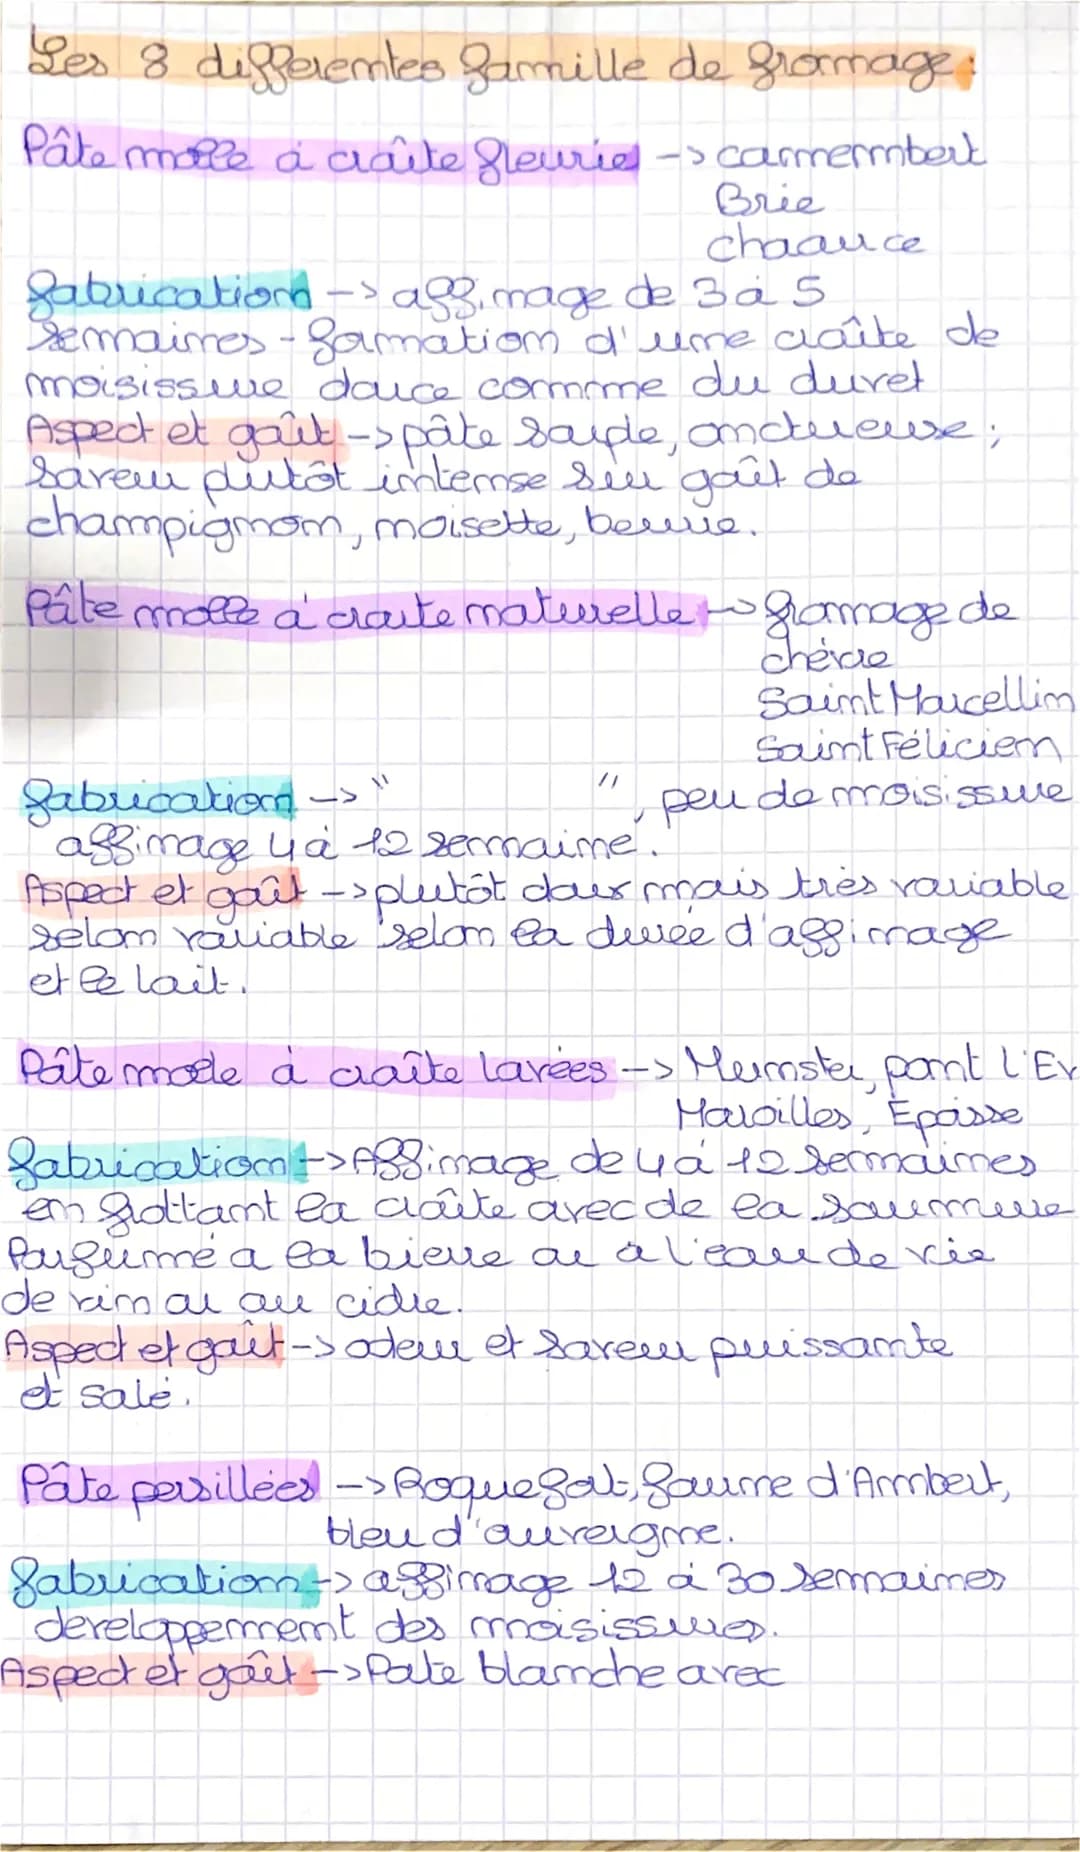 Les 8 differentes famille de fromage :
Pâte molle à croûte fleurie -> camembert
Brie
chaouce
fabrication -> affinage de 3 à 5
semaines - formation d'une croûte de
moisissure douce comme du duvet
Aspect et goût -> pâte souple, onctueuse ;
saveur plutôt intense sur goût de
champignon, noisette, beurre.
Pâte molle à croute naturelle -> fromage de
chévre
Saint Marcellin
Saint Félicien
fabrication -> " ", peu de moisissure
affinage 4 à 12 semaine.
Aspect et goût -> plutôt doux mais très variable
selon variable selon la durée d'affinage
et le lait.
Pâte molle à croûte lavées -> Munster, pont l'Ev
Maroilles, Époisse
fabrication -> Affinage de 4 à 12 semaines
en frottant la croûte avec de la saumure
Parfumé a la bierre ou à l'eau de vie
de vin ou au cidre.
Aspect et goût -> odeur et saveur puissante
et salé.
Pâte persillées -> Roquefort, fourme d'Ambert,
bleu d'auvergne.
fabrication -> affinage 12 à 30 semaines
developpement des moisissures.
Aspect et goût -> Pate blanche avec